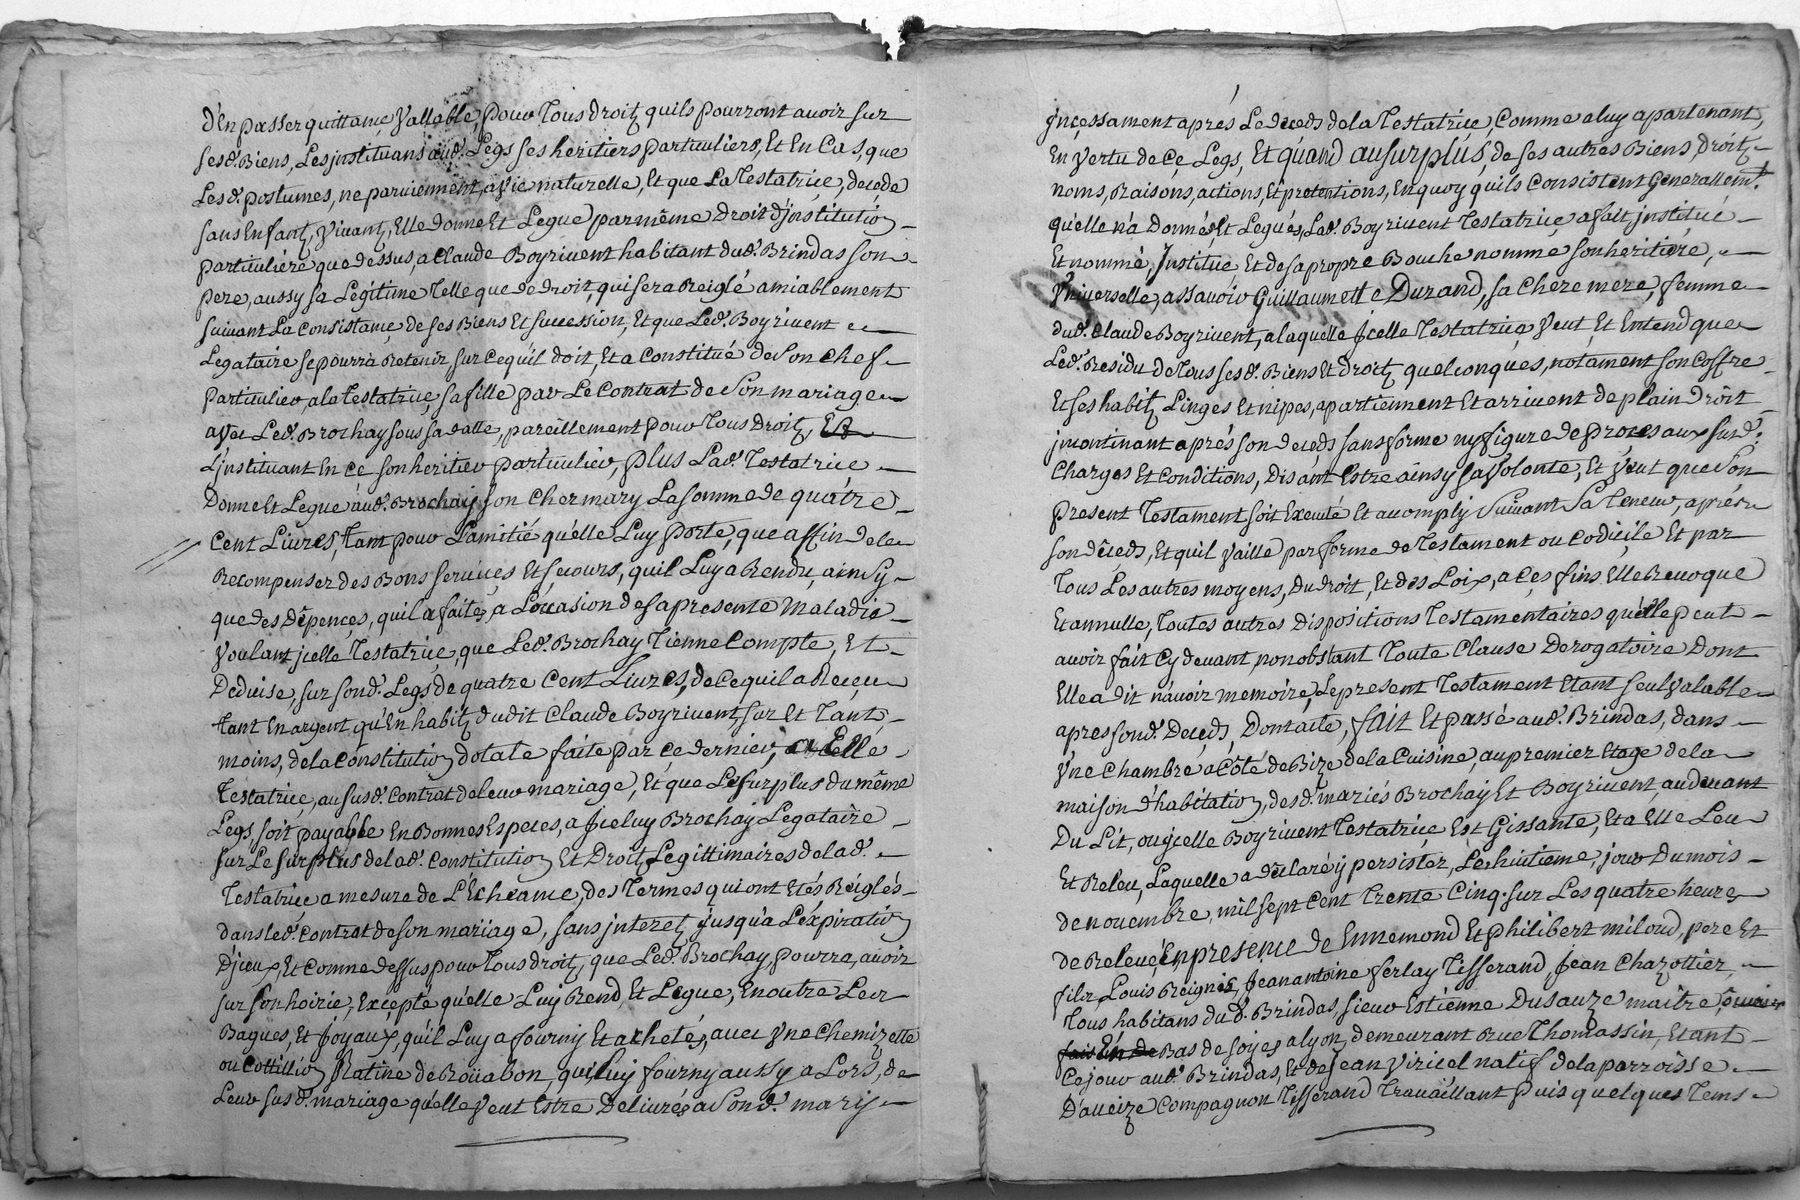 d'En passer quittance Vallable, pour Tous droitz quils pourront auoir sur
sesd. Biens, Les jnstituans aud. Legs ses heritiers particuliers, Et En Cas, que
Lesd. postumes, ne paruiennent, a vie naturelle, Et que La Testatrice, decede
sans Enfantz, viuantz, Elle donne Et Legue par même Droit d'jnstitution
particuliére que dessus, a Claude Boyriuent habitant dud. Brindas son
pere, aussy sa Légitime Telle que de droit, qui sera Reiglé amiablement
suiuant La Consistance, de ses Biens Et succession, Et que Led. Boyriuent
Legataire se pourra Retenir sur ce qu'il doit, Et a Constitué de son chef
Particulier, a la Testatrice, sa fille par Le Contrat de Son mariage
avec Led. Brochay sous sa datte, pareillement pour Tous Droitz, Et
L'jnstituant En ce son heritier particuliér, plus Lad. Testatrice
Donne Et Legue aud. Brochay son Cher mary La somme de quatre
Cent Liures, tant pour L'amitié qu'elle Luy porte, que affin de le
Recompenser des Bons seruices Et secours, quil Luy a Rendu, ainsy
que des Dépences, quil a faites, a L'occasion de sa presente Maladie
Voulant jcelle Testatrice, que Led. Brochay Tienne Compte, Et
Deduise, sur sond. Legs de quatre Cent Liures, de ce quil a Receu
tant En argent qu'En habitz dudit Claude Boyriuent sur Et Tant
moins, de la Constitution dotale faite par ce dernier, a Elle
Testatrice, au susd. Contrat de leur mariage, Et que Le surplus du même
Legs, soit payable En Bonnes Especes, a Jceluy Brochay Legataire
sur Le surplus de lad. Constitution Et Droitz Legittimaires de lad.
Testatrice a mesure de L'Echeance, des Termes qui ont Etés Reiglés
dans led. Contrat de son mariage, sans jnteretz jusqu'a L'éxpiration
D'jceux, Et Comme dessus pour Tous droitz, que Led. Brochay pourra, auoir
sur son hoirie, Excepté qu'elle Luy Rend, Et Legue, En outre Les
Bagues, Et Joyaux, qu'il Luy a fourny Et achetés, auec vne Chemizette
ou Cottillion Ratine de Roüa bon, qui luy fourny aussy a Lors, de
Leur susd. mariage qu'elle Veut Estre Deliurés a Sond. mary
jncessament aprés Le deceds de la Testatrice, Comme a luy apartenant,
En Vertu de Ce Legs, Et quand au surplus, de ses autres Biens, Droitz
noms, Raisons, actions, Et pretentions, En quoy qu'ils Consistent Generallemt.
qu'elle n'a Donnés, Et Legués, Lad. Boyriuent Testatrice a fait jnstitué
Et nommé, Jnstitue Et de sa propre Bouche nomme son heritiere,
Vniverselle, assauoir Guillaumette Durand, sa Chere mere, femme
dud. Claude Boyriuent, a laquelle Jcelle Testatrice Veut, Et Entend que
Led. Residu de Tous sesd. Biens Et droitz quelconques, notament son Coffre
Et ses habitz Linges Et nipes, apartiennent Et arriuent de plain droit
jncontinant aprés son deceds sans forme ny figure de procés aux susd.
Charges Et Conditions, Disant Estre ainsy sa Volonté, Et Veut que Son
present Testament soit Executé Et accomply Suiuant Sa Teneur, aprés
son déceds, Et quil Vaille par forme de Testament ou Codicile Et par
Tous Les autres moyens, Du droit, Et des Loix, a Ces fins Elle Reuoque
Et annulle, Toutes autres Dispositions Testamentaires qu'elle peut
auoir fait Cy deuant, nonobstant Toute Clause Derogatoire Dont
Elle a Dit n'auoir memoire, Le present Testament Etant seul Valable
apres sond. Deceds, Dont acte, fait Et passé aud. Brindas, dans
Vne Chambre a Côté de Bize de la Cuisine, au premier Etage de la
maison d'habitation, desd. mariés Brochay Et Boyriuent, au deuant
Du Lit, ou jcelle Boyriuent Testatrice Est Gissante, Et a Elle Leu
Et Releu, Laquelle a declaré y persister, Le huitieme, jour Du mois
de nouembre, mil sept Cent Trente Cinq. sur Les quatre heures
de Releué, En presence de Ennemond Et Philibert miloud, pere Et
filz Louis Reignié, Jean antoine ferlay Tisserand, Jean Chazottier,
Tous habitans dud. Brindas, sieur Estienne Dusauze maitre
Bas de soyes a lyon, demeurant Rue Thomassin, Etant
Ce jour aud. Brindas, Et de Jean Viricel natif de la parroisse
D'aueize Compagnon Tisserand Trauaillant puis quelques Tems